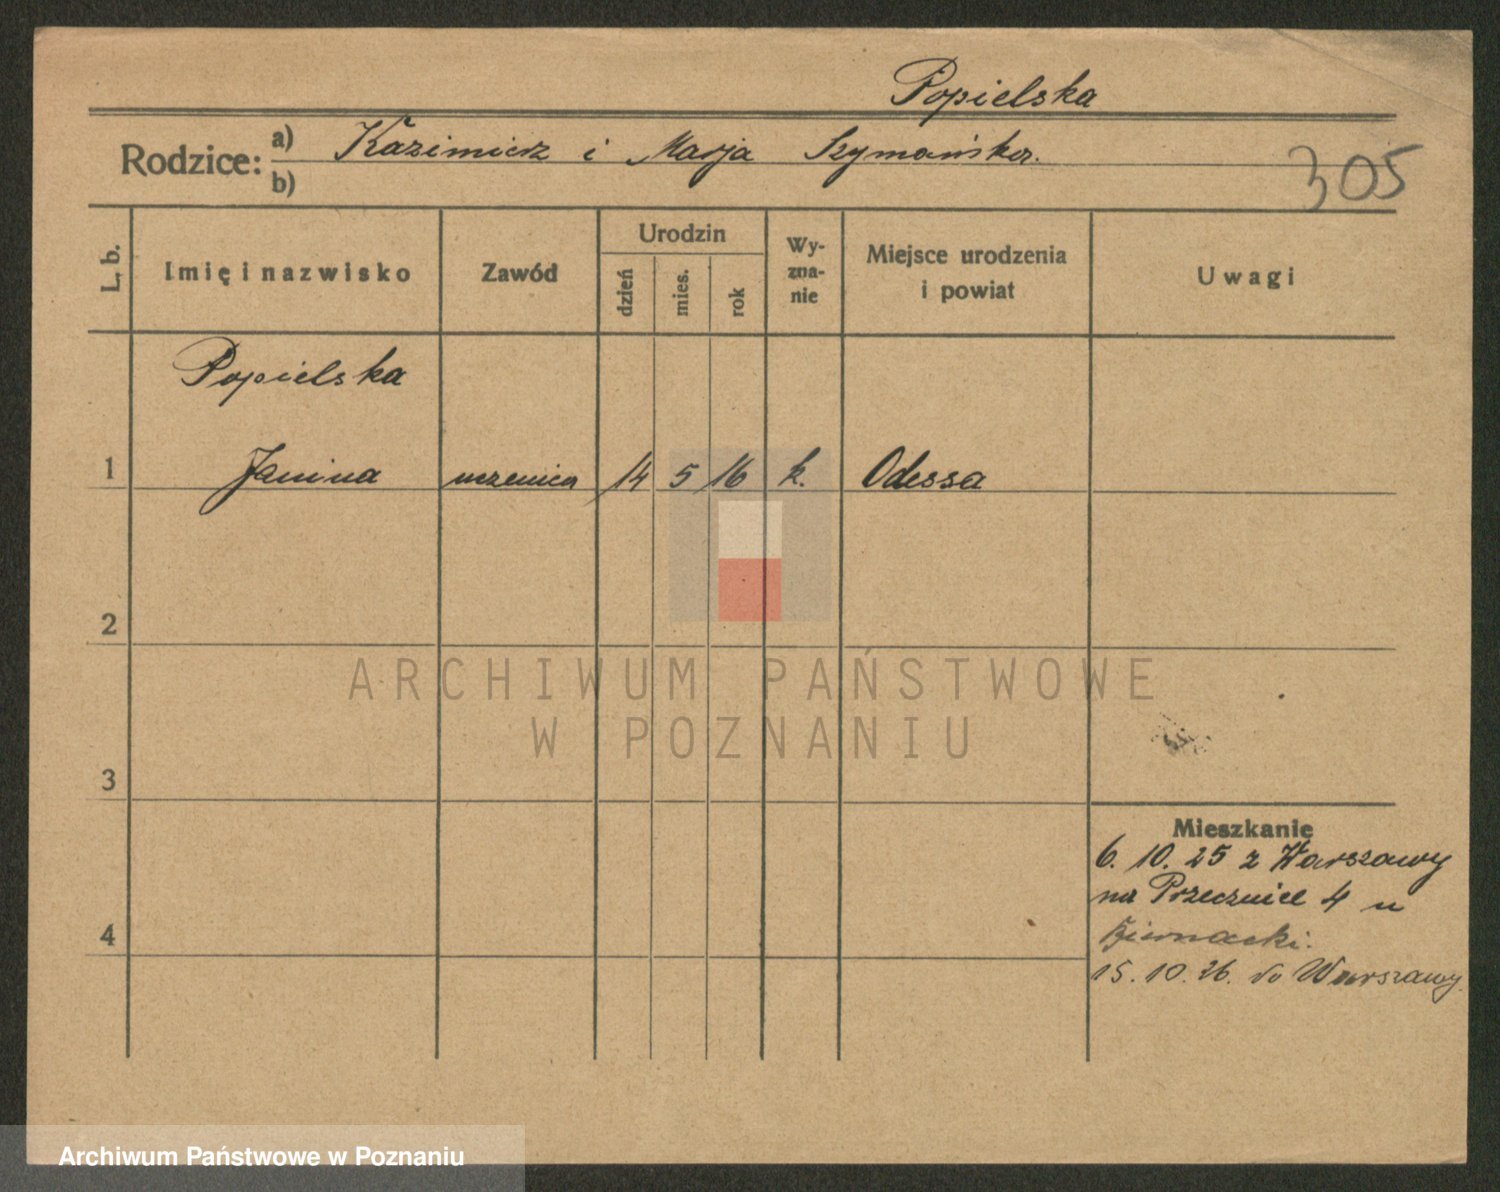 Popielska
Rodzice: a) Kazimierz i Marja Szymańska.
b)
305
L. b.
Imię i nazwisko
Zawód
Urodzin
dzień
mies.
rok
Wy-
zna-
nie
Miejsce urodzenia
i powiat
Uwagi
Popielska
1 Janina uczenica 14 5 16 k. Odessa
2
ARCHIWUM PAŃSTWOWE
W POZNANIU
3
Mieszkanie
6. 10. 25 z Warszawy
na Przecznice 4 u
4
Biernacki.
15. 10. 26. do Warszawy.
Archiwum Państwowe w Poznaniu